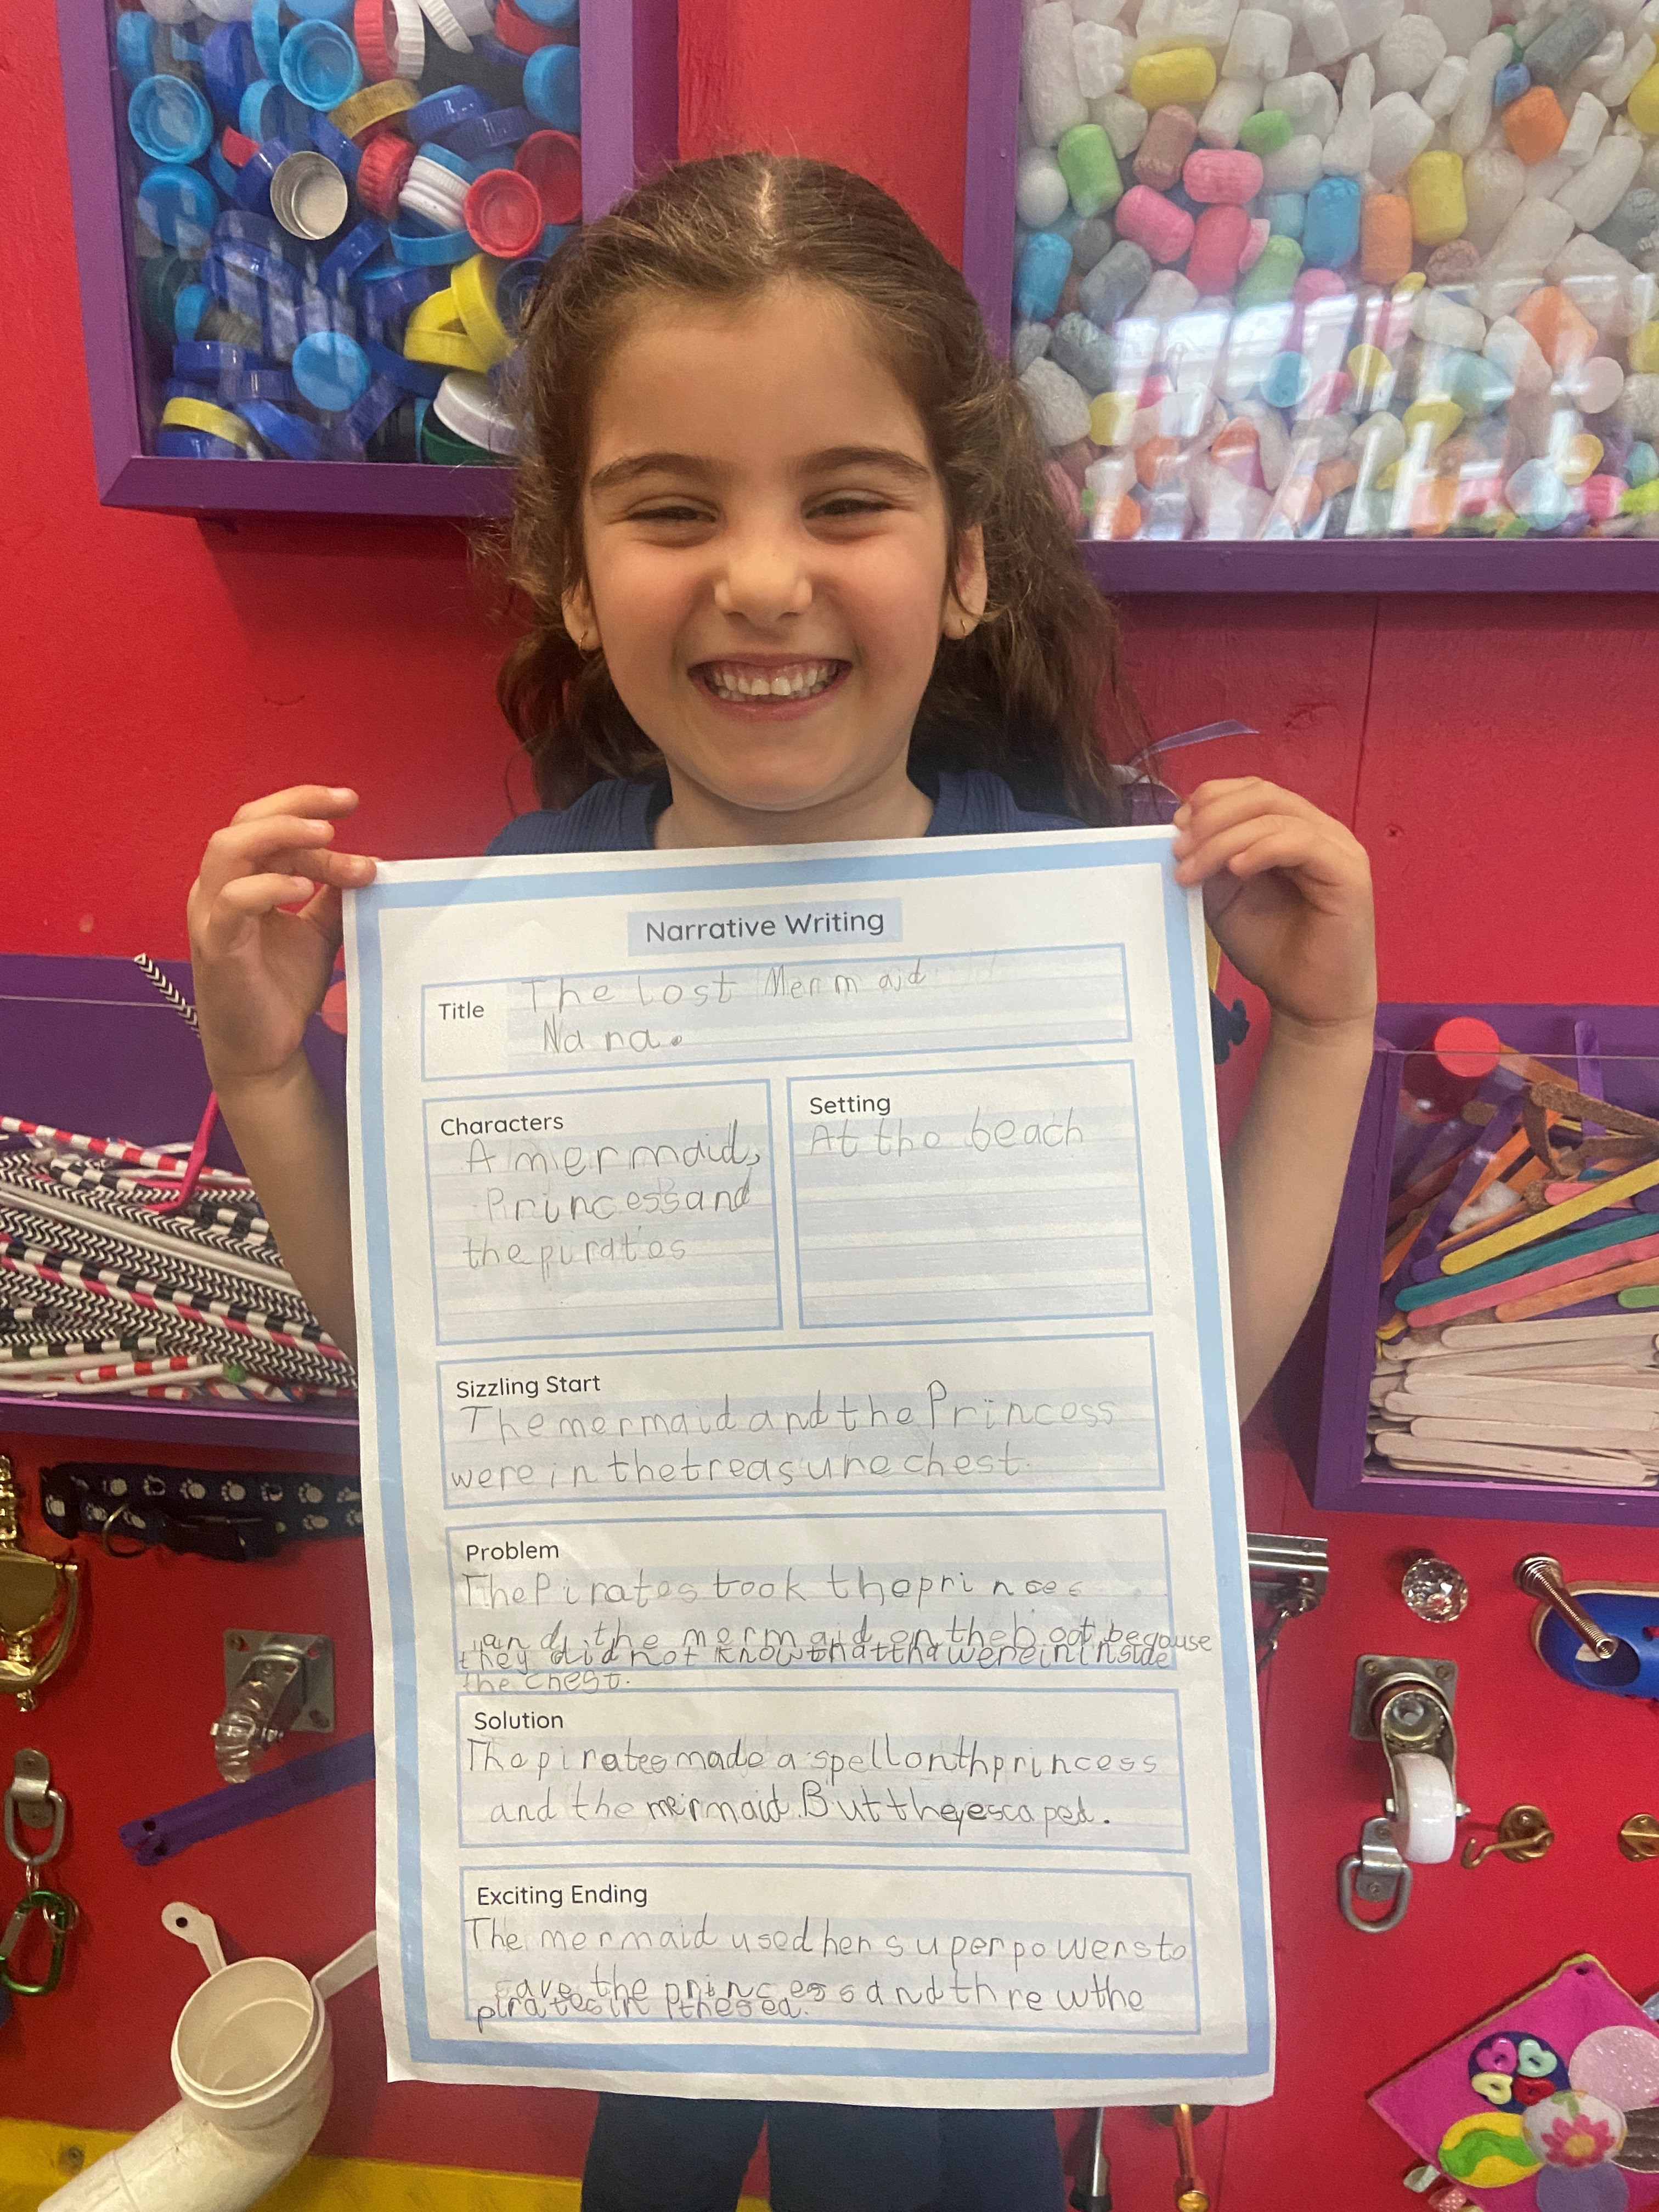 Narrative Writing
Title
The lost Mermaid
Nana.
Characters
A mermaid,
Princess and
the pirates
Setting
At the beach
Sizzling Start
The mermaid and the Princess
were in the treasure chest.
Problem
The Pirates took the princes
and the mermaid on the boat because
they did not know that tha were in inside
the chest.
Solution
The pirates made a spell on th princess
and the mermaid. But they escaped.
Exciting Ending
The mermaid used her superpowers to
save the princess and threw the
pirates in the sea.